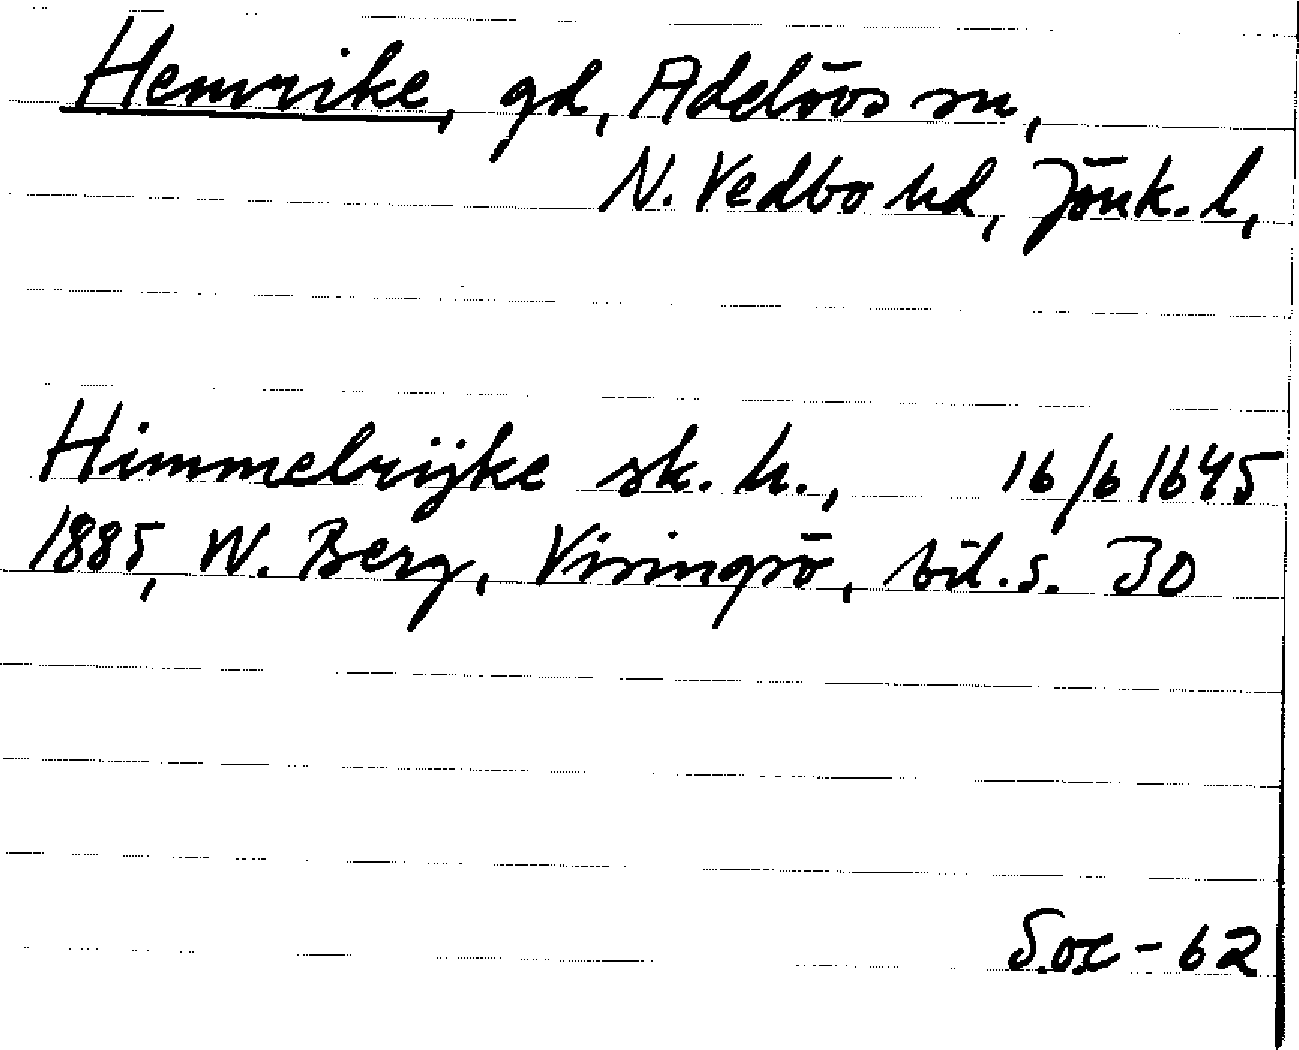 Hemrike, gd, Adelövs sn,
N. Vedbo hd, Jönk. l,
Himmelrijke sk. h., 16/6 1645
1885, W. Berg, Visingsö, bil. s. 30
Sox-62